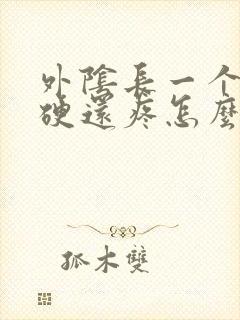 外陰長一个
硬還疼怎麼
孤木雙